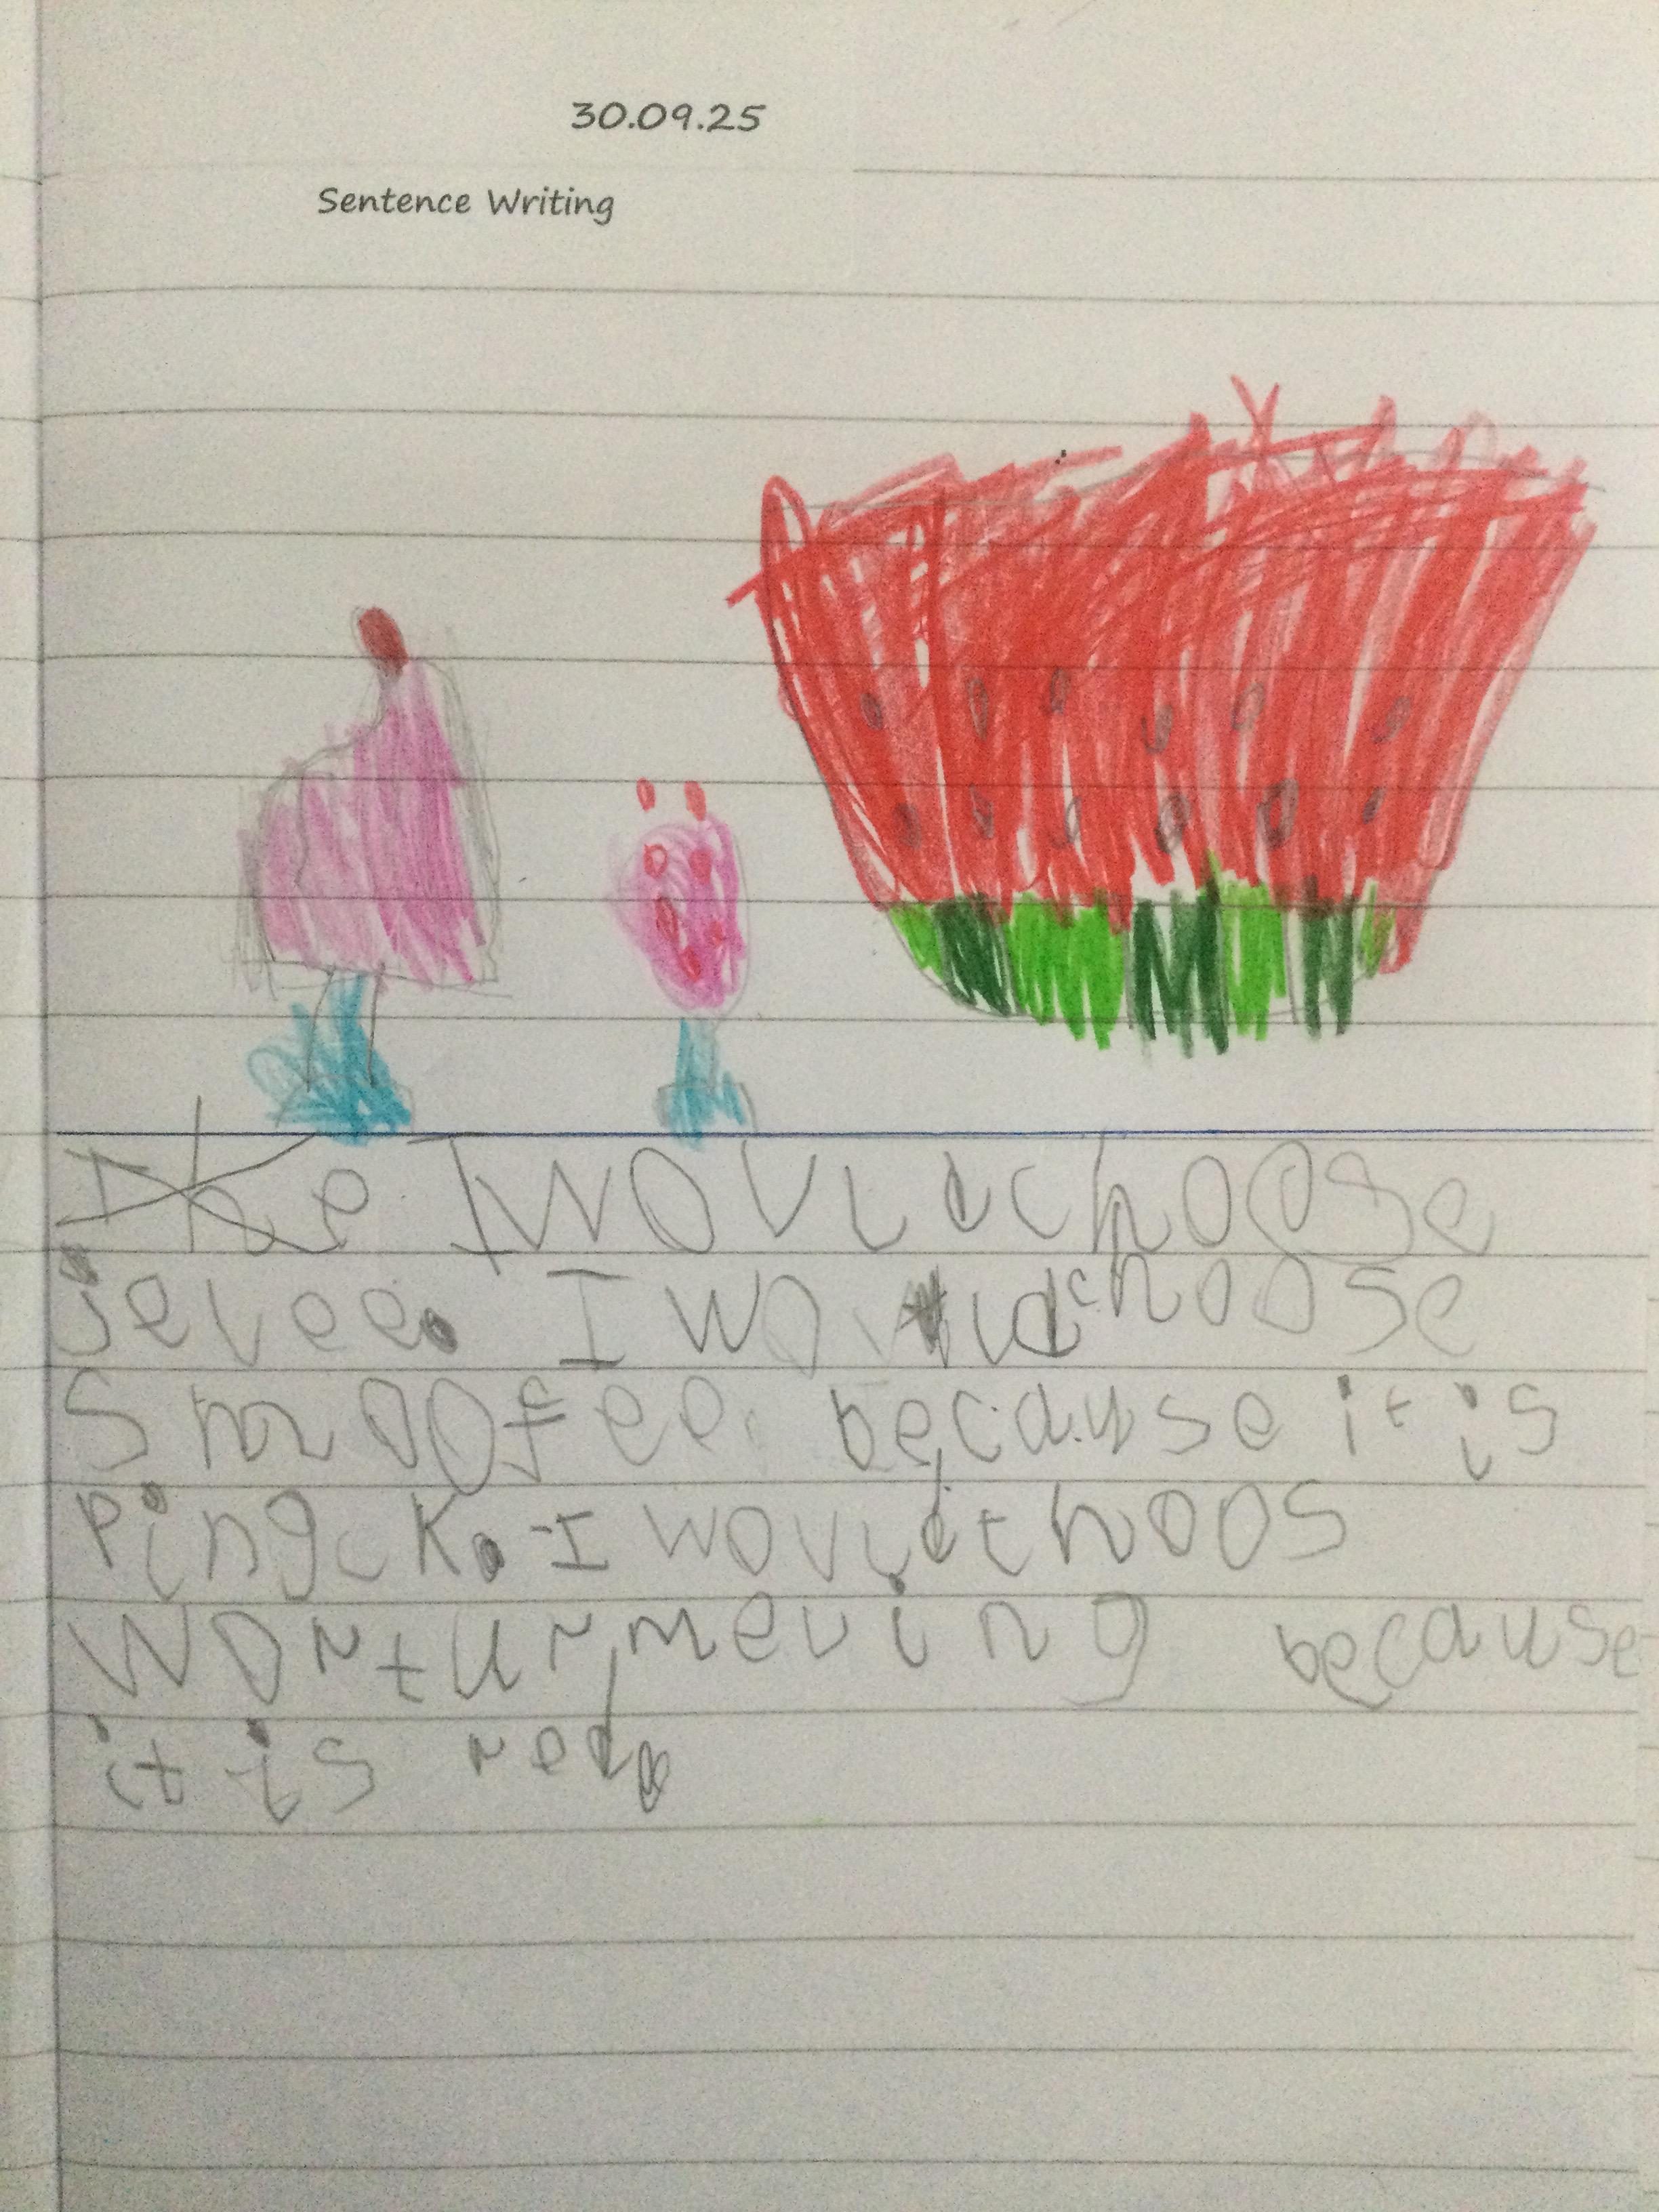 30.09.25
Sentence Writing
The I would choose
jelee. I would choose
Smoofee. because it is
pingck. I would choos
worturmeling because
it is red.